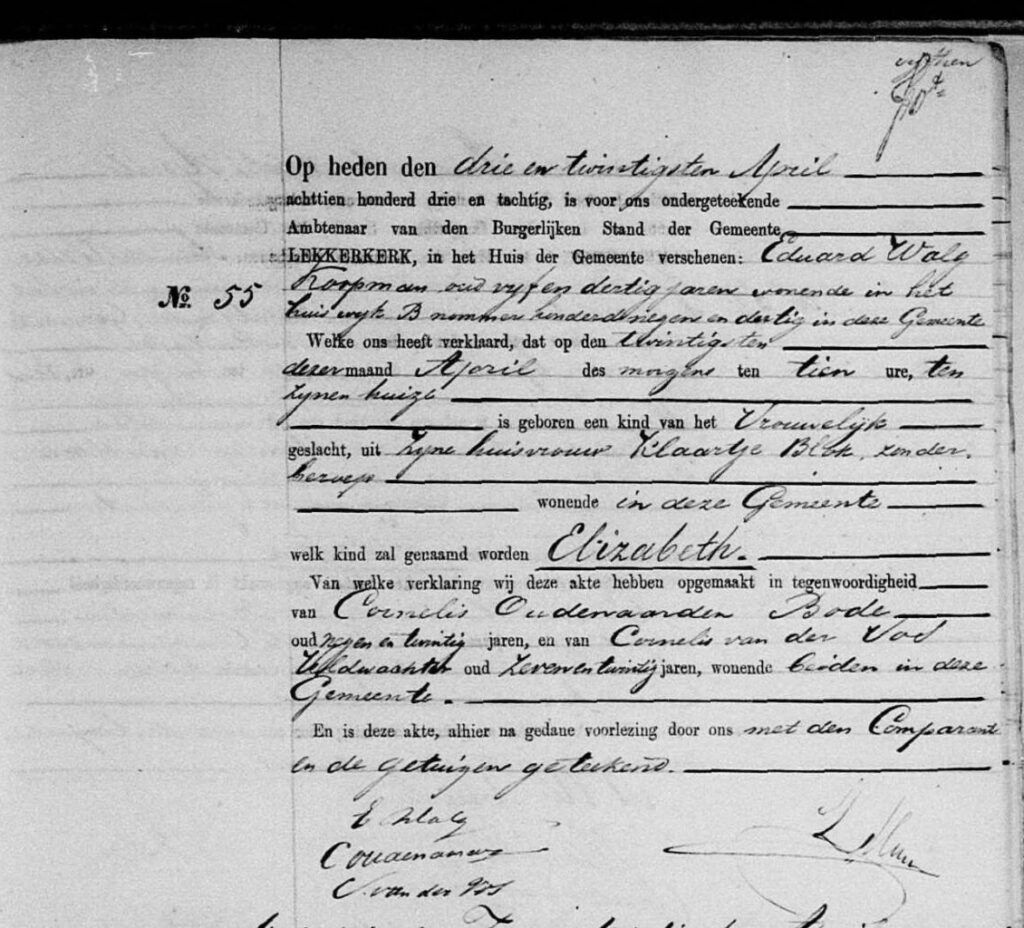 vyftien
Op heden den drie en twintigsten April
achttien honderd drie en tachtig, is voor ons ondergeteekende
Ambtenaar van den Burgerlijken Stand der Gemeente
LEKKERKERK, in het Huis der Gemeente verschenen: Eduard Walg
No. 55
Koopman oud vyf en dertig jaren wonende in het
huis wyk B nommer honderd negen en dertig in deze Gemeente
Welke ons heeft verklaard, dat op den twintigsten
dezer maand April des morgens ten tien ure, ten
zynen huize
is geboren een kind van het Vrouwelijk
geslacht, uit zyne huisvrouw Klaartje Blok, zonder
beroep
wonende in deze Gemeente
welk kind zal genaamd worden Elizabeth.
Van welke verklaring wij deze akte hebben opgemaakt in tegenwoordigheid
van Cornelis Oudenaarden Bode
oud negen en twintig jaren, en van Cornelis van der Vos
Veldwachter oud zevenentwintig jaren, wonende beiden in deze
Gemeente.
En is deze akte, alhier na gedane voorlezing door ons met den Comparant
en de getuigen geteekend.
E Walg
C Oudenaarden
C. van der Vos